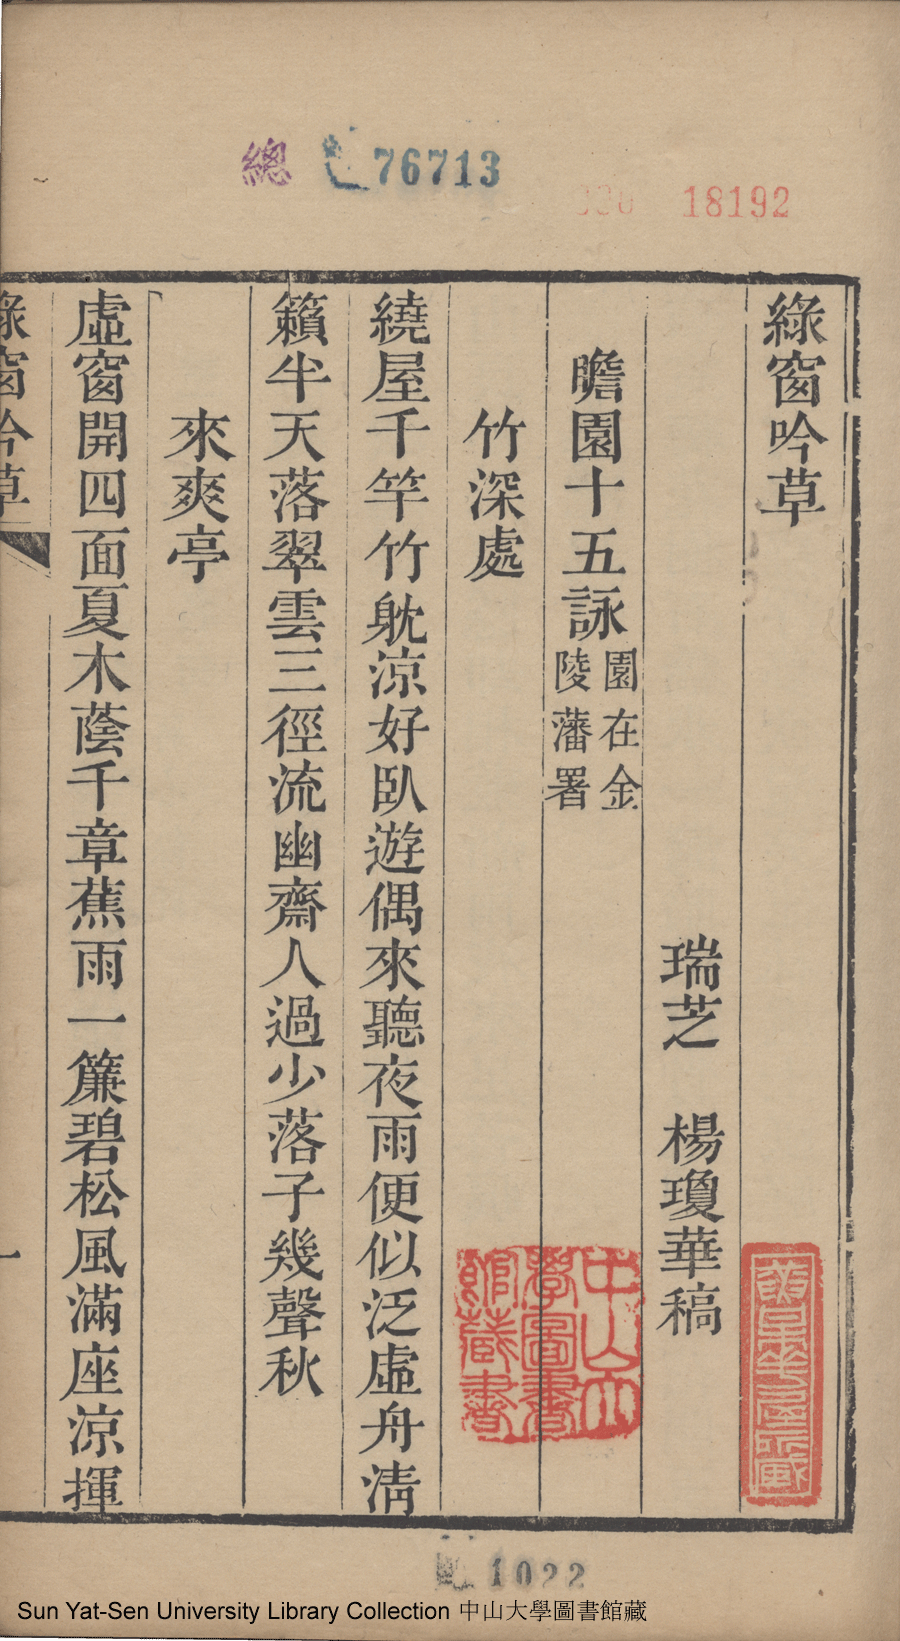 總 76713
18192
綠窗吟草
瑞芝 楊瓊華稿
瞻園十五詠 園在金陵藩署
竹深處
繞屋千竿竹躭涼好臥遊偶來聽夜雨便似泛虛舟清
籟半天落翠雲三徑流幽齋人過少落子幾聲秋
來爽亭
虛窗開四面夏木蔭千章蕉雨一簾碧松風滿座涼揮
綠窗吟草
一
中山大學圖書館藏書
1022
Sun Yat-Sen University Library Collection 中山大學圖書館藏